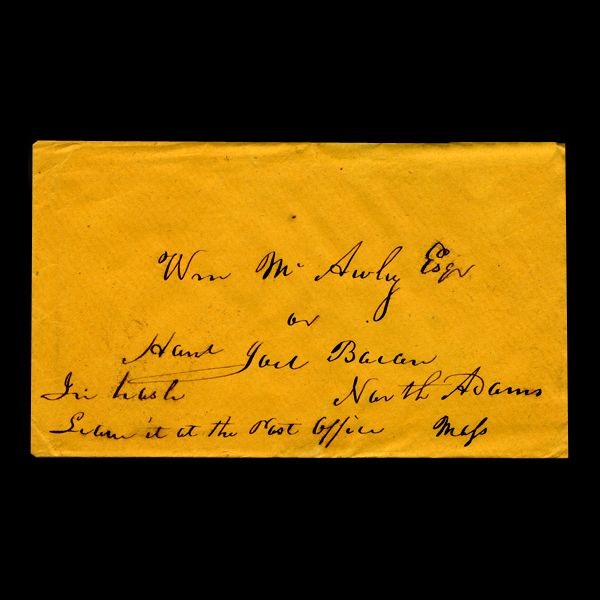 Wm Mc Auly Esqr
or
Hant Joel Bacan
In hash North Adams
Leave it at the Post Office Mass